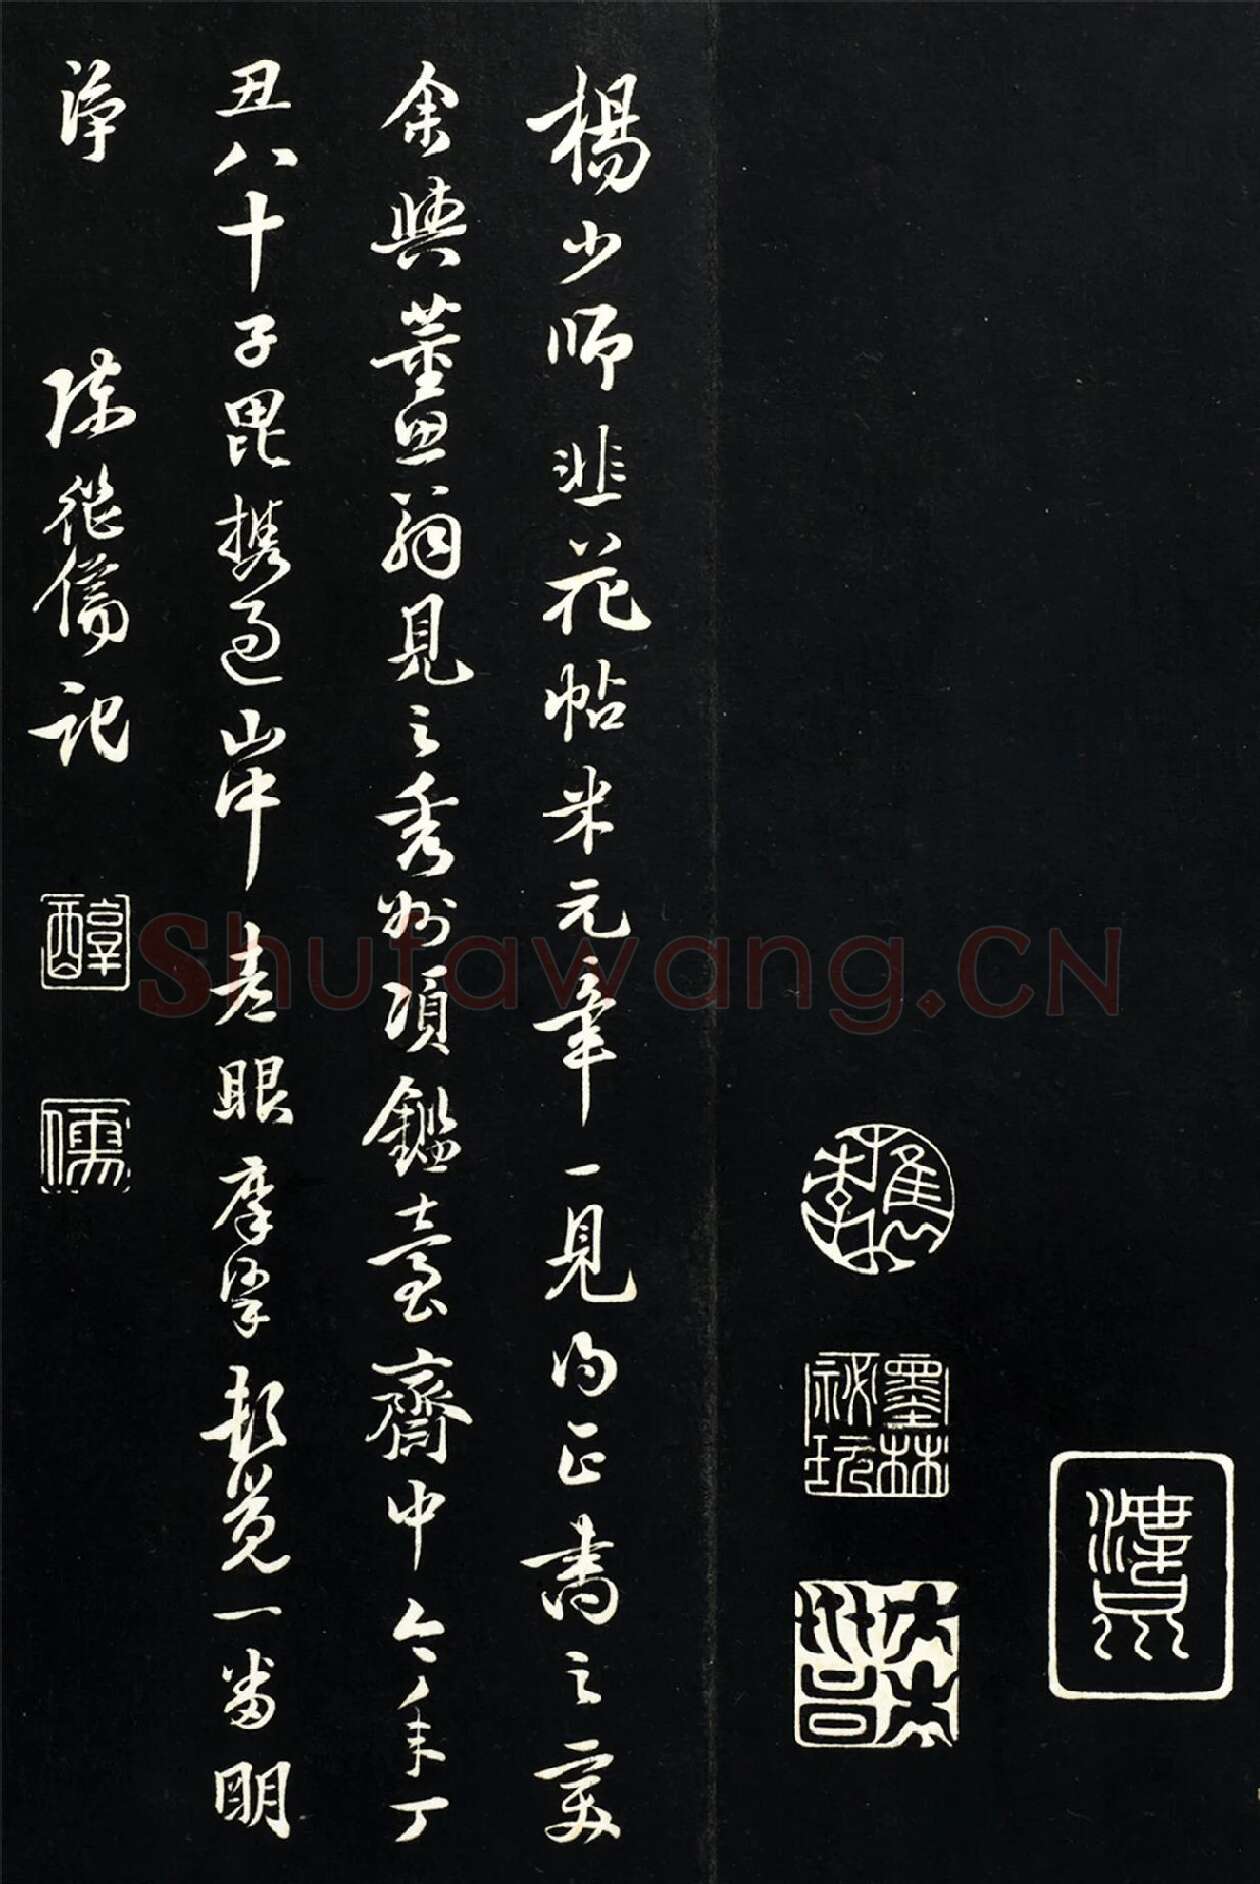 檇李
墨林祕玩
楊少師韭花帖米元章一見為正書之變
余與董思翁見之秀州項鑑臺齋中今年丁
丑八十子毘攜過山中老眼摩挲頓覺一番明
淨 陳繼儒記
醇
儒
Shufawang.CN